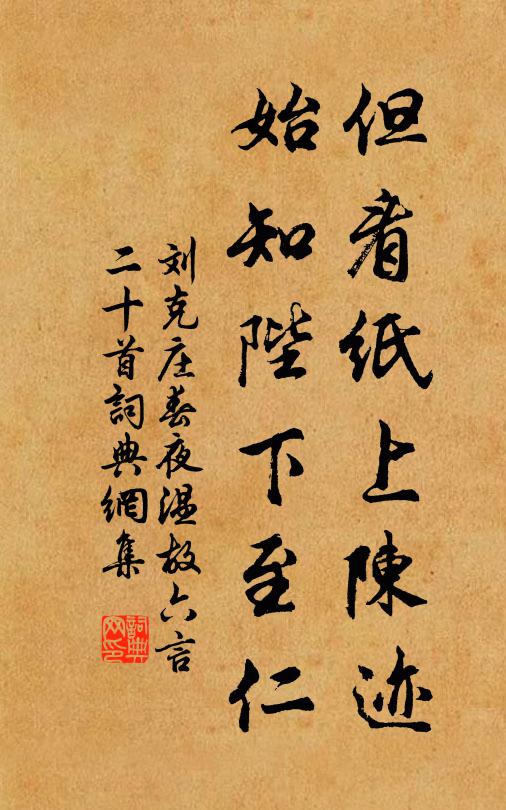 但看紙上陳迹
始知陛下至仁
刘克庄春夜温故六言
二十首詞典網集
詞典网印